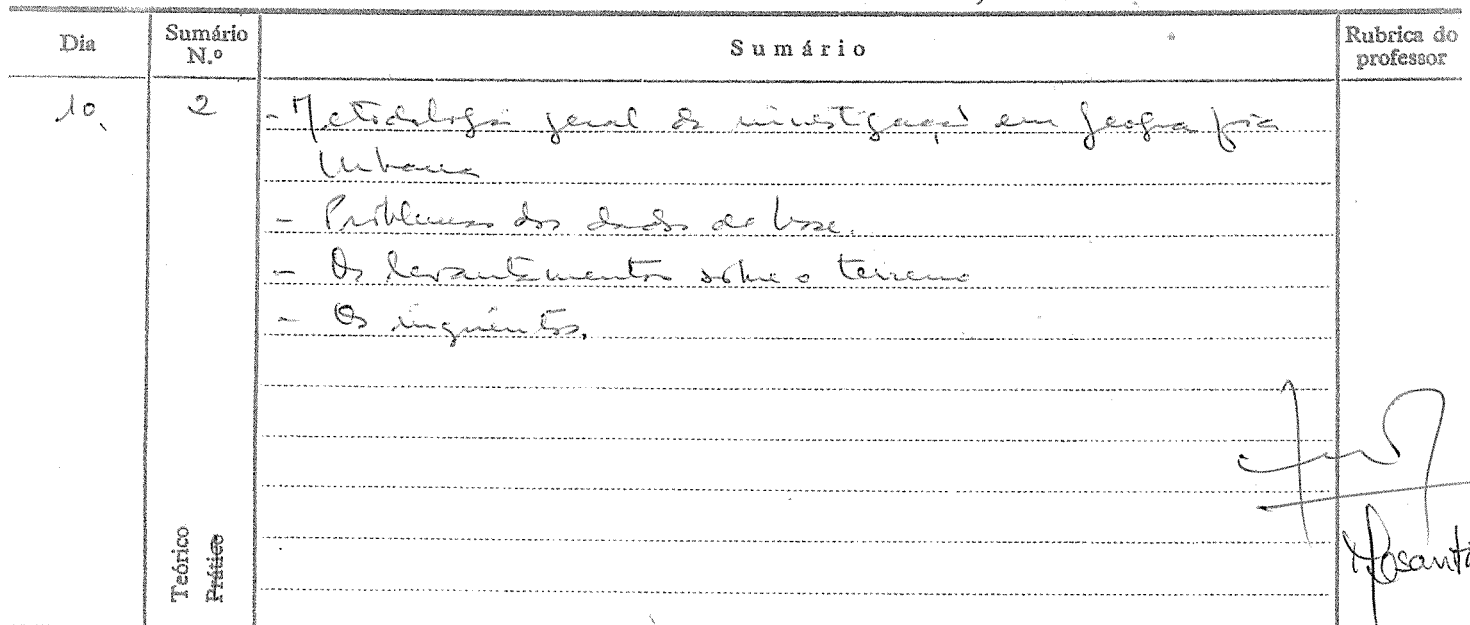 Dia
Sumário
N.º
Sumário
Rubrica do
professor
10.
2
- Metodologia geral da investigação em Geografia
Urbana
- Problemas dos dados de base.
- Os levantamentos sobre o terreno
- Os inquéritos.
Teórico
Prático